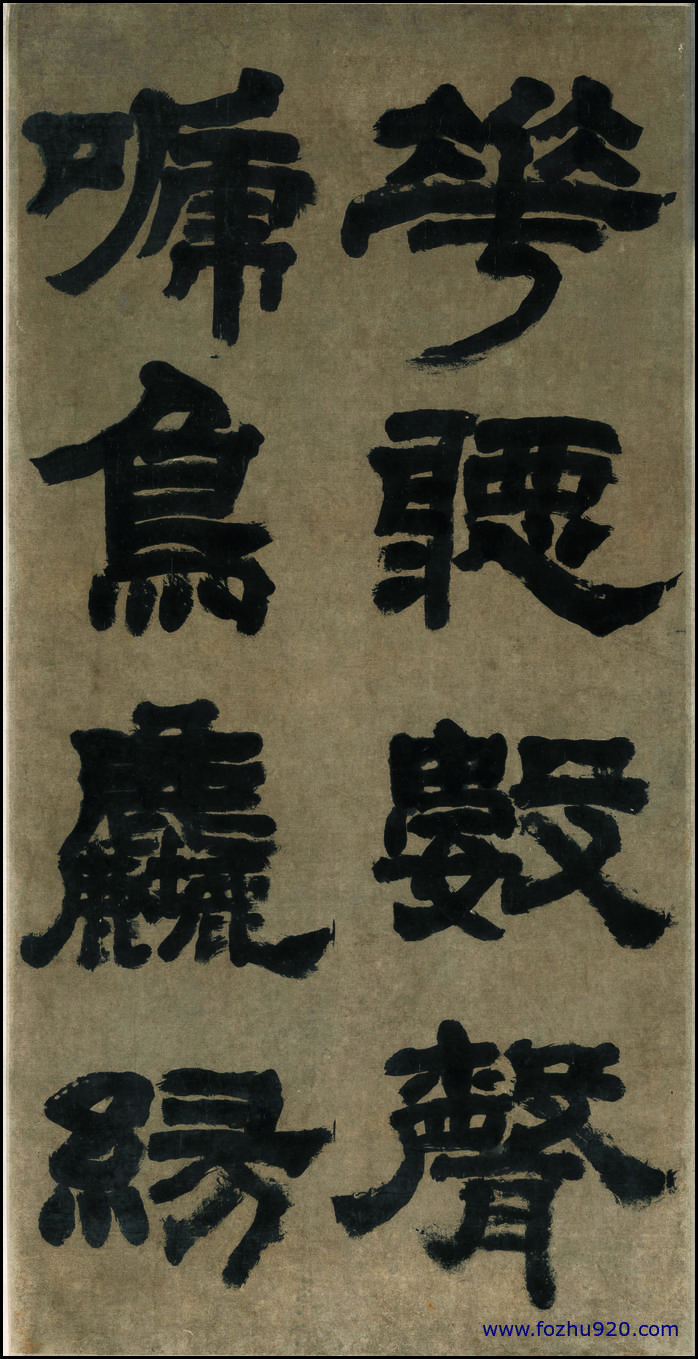 華聽數聲
鳥麤緣
www.fozhu920.com